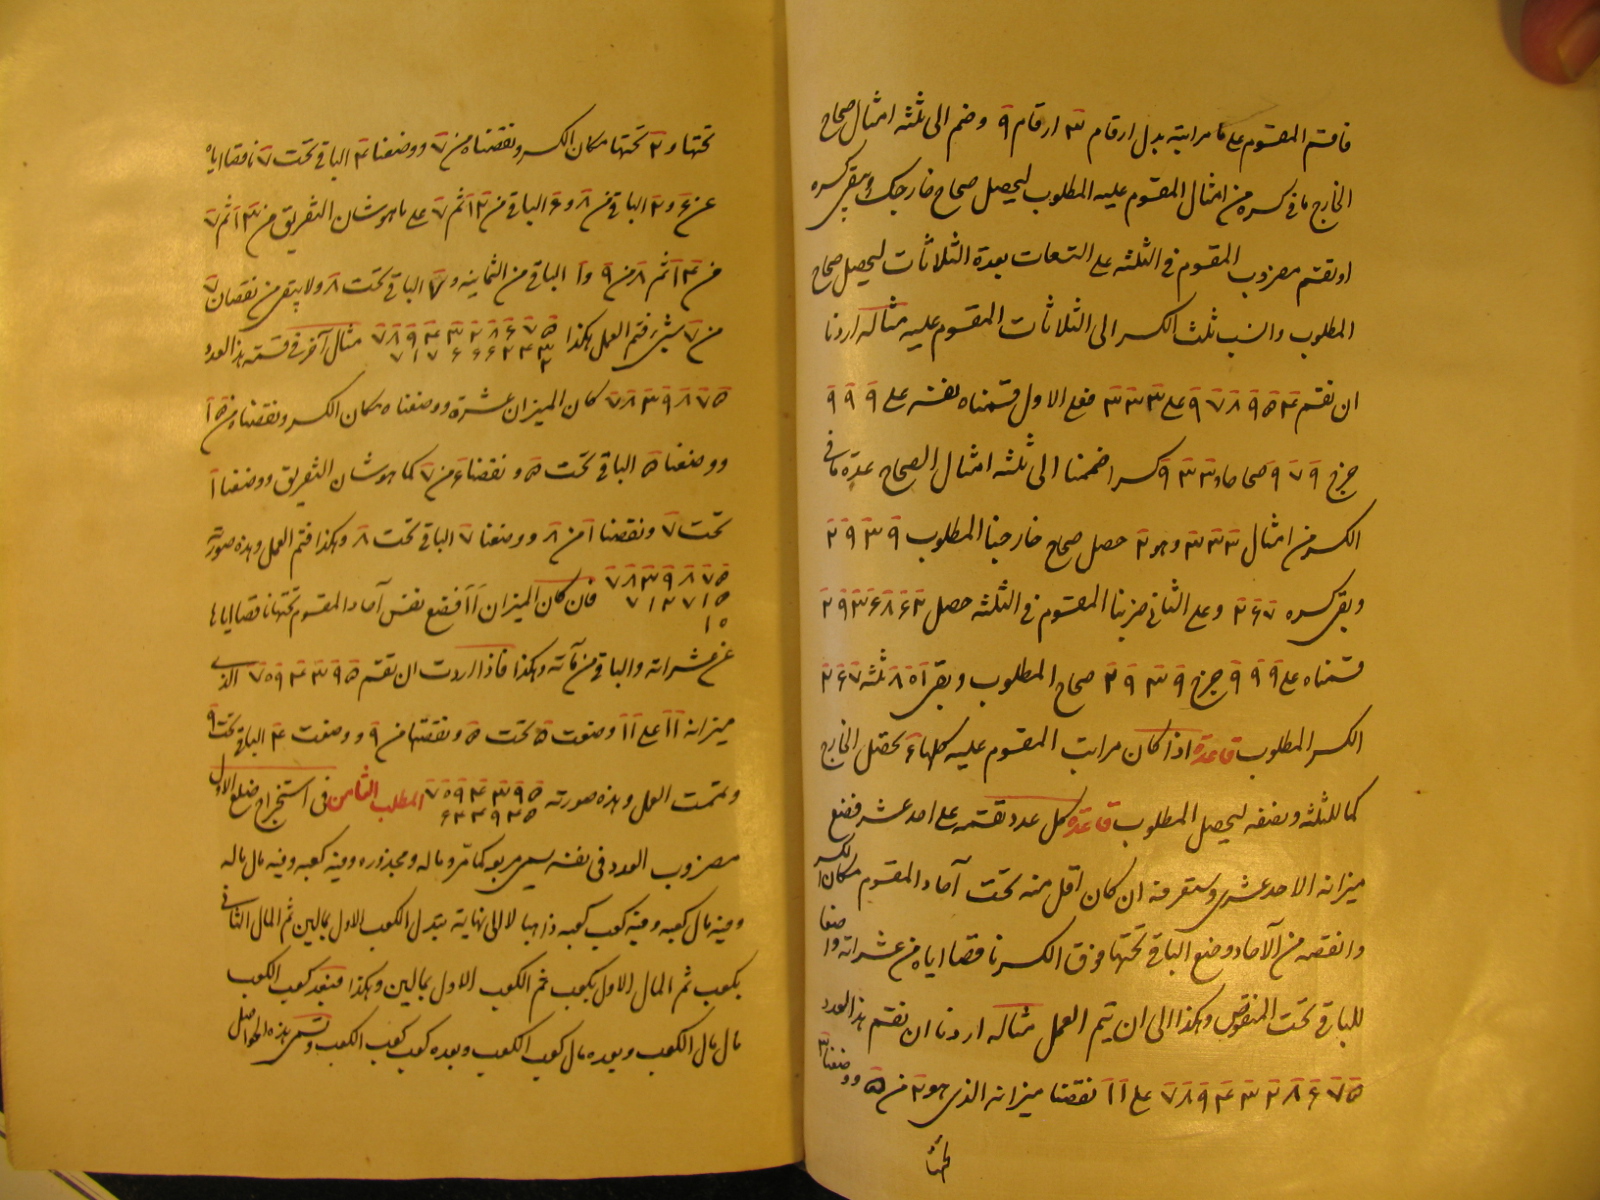 فاقسم المقسوم على ما مراتبه بدل ارقام ٣ ارقام ٩ وضم الى ثلثه امثال صحاح
الخارج ما فى كسره من امثال المقسوم عليه المطلوب ليحصل صحاح خارجك ويبقى كسره
او نقسم مضروب المقسوم فى الثلثه على التسعات بعدة الثلاثات ليحصل صحاح
المطلوب وانسب ثلث الكسر الى الثلاثات المقسوم عليه مثاله اردنا
ان نقسم ٩٧٨٩٥٤ على ٣٣٣ فعلى الاول قسمناه نفسه على ٩٩٩
خرج ٩٧٩ صحاحا و ٩٣٣ كسرا ضممنا الى ثلثه امثال الصحاح عدة ما فى
الكسر من امثال ٣٣٣ وهو ٢ حصل صحاح خارجنا المطلوب ٢٩٣٩
وبقى كسره ٢٦٧ وعلى الثانى ضربنا المقسوم فى الثلثه حصل ٢٩٣٦٨٦٢
قسمناه على ٩٩٩ خرج ٢٩٣٩ صحاح المطلوب وبقى ٨٠١ ثلثه ٢٦٧
الكسر المطلوب قاعدة اذا كان مراتب المقسوم عليه كلها ٦ نحصل الخارج
كما للثلثه وننصفه ليحصل المطلوب قاعدة كل عدد نقسمه على احد عشر فضع
ميزانه الاحد عشرى وستعرفه ان كان اقل منه تحت آحاد المقسوم مكان الكسر
وانقصه من الآحاد وضع الباقى تحتها فوق الكسر ناقصا اياه من عشراته واضعا
للباقى تحت المنقوص وهكذا الى ان يتم العمل مثاله اردنا ان نقسم هذا العدد
٧٨٩٤٣٢٨٦٧٥ على ١١ نقصنا ميزانه الذى هو ٢ من ٥ ووضعنا ٣
تحتها
تحتها و٢ تحتها مكان الكسر ونقصناه من ٧ ووضعنا ٤ الباقى تحت ٧ ناقصا اياه
عن ٦ و٢ الباقى من ٨ و٦ الباقى من ١٢ ثم ٧ على ما هو شان التفريق من ١٣ ثم ٧
من ١٤ ثم ٨ من ٩ و١ الباقى من الثمانيه و٧ الباقى تحت ٨ ولا يبقى من نقصان ٧
من ٧ شئ فتم العمل هكذا ٧٨٩٤٣٢٨٦٧٥ مثال آخر فى قسمة هذا العدد
٧١٧٦٦٦٢٤٣
٢
٧٨٣٩٨٧٥ كان الميزان عشرة ووضعناه مكان الكسر ونقصناه من ١٥
ووضعنا ٥ الباقى تحت ٥ ونقصنا ٦ من ٧ كما هو شان التفريق ووضعنا ١
تحت ٧ ونقصنا ١ من ٨ ووضعنا ٧ الباقى تحت ٨ وهكذا فتم العمل وهذه صورته
٧٨٣٩٨٧٥ فان كان الميزان ١١ فضع نفس آحاد المقسوم تحتها ناقصا اياها
٧١٢٧١٥
١٠
عن عشراته والباقى من مآته وهكذا فاذا اردت ان نقسم ٧٥٩٤٣٩٥ الذى
ميزانه ١١ على ١١ وضعت ٥ تحت ٥ ونقصتها من ٩ ووضعت ٤ الباقى تحت ٩
وتممت العمل وهذه صورته ٧٥٩٤٣٩٥ المطلب الثامن فى استخراج ضلع الاول
مضروب العدد فى نفسه يسمى مربعه كما مر وماله ومجذوره وفيه كعبه وفيه مال ماله
وفيه مال كعبه وفيه كعب كعبه ذاهبا لا الى نهاية بتبدل الكعب الاول بمالين ثم المال الثانى
بكعب ثم المال الاول بكعب ثم الكعب الاول بمالين وهكذا فبعد كعب الكعب
مال مال الكعب وبعده مال كعب الكعب وبعده كعب كعب الكعب وتسمى هذه الحواصل